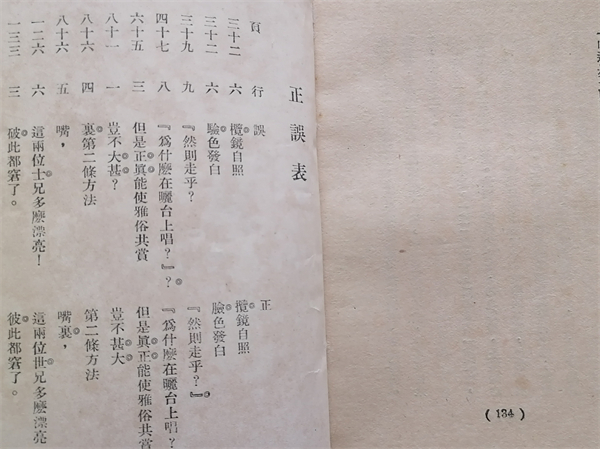 正誤表
頁 行 誤 正
三十二 六 欖鏡自照 攬鏡自照
三十二 六 驗色發白 臉色發白
三十九 九 『然則走乎？ 『然則走乎？』
四十七 八 『爲什麽在曬台上唱？』？ 『爲什麽在曬台上唱？
六十五 三 但是正眞能使雅俗共賞 但是眞正能使雅俗共賞
八十一 一 豈不大甚？ 豈不甚大
八十六 四 裏第二條方法 第二條方法
八十六 五 嘴， 嘴裏，
一二六 六 這兩位士兄多麽漂亮！ 這兩位世兄多麽漂亮
一三三 三 破此都窘了。 彼此都窘了。
(134)